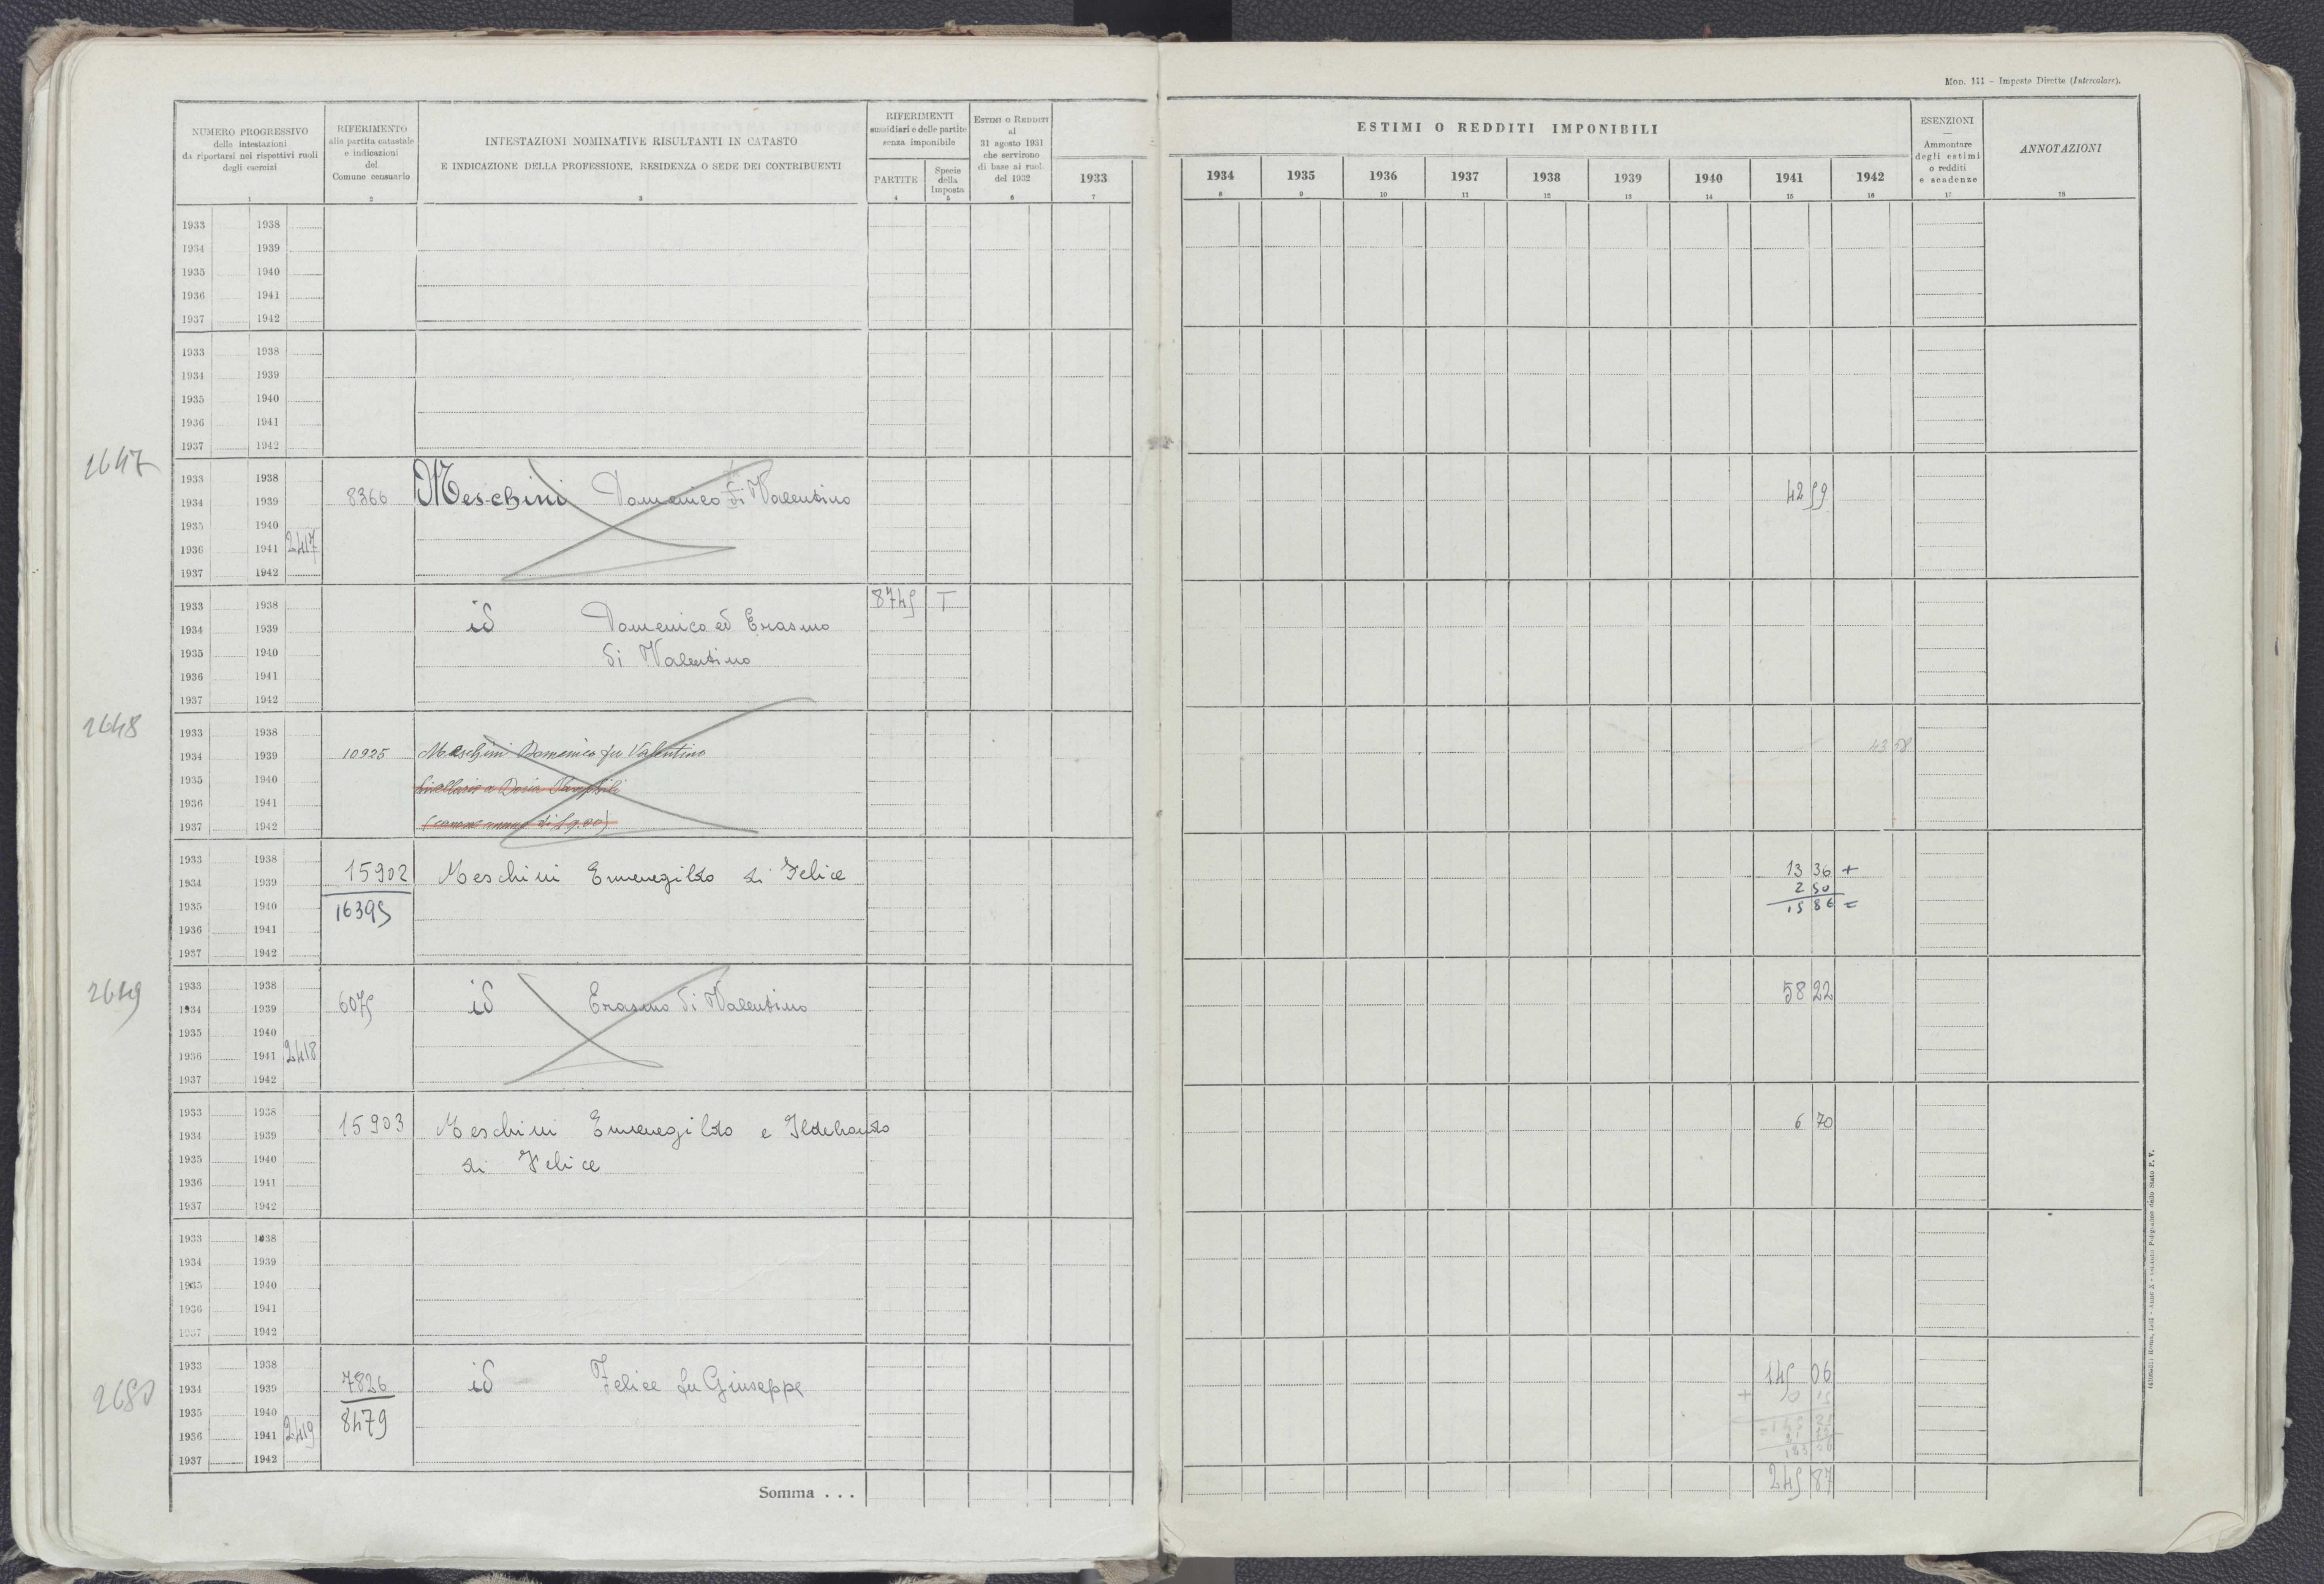 Mod. 111 - Imposte Dirette (Intercalare).
NUMERO PROGRESSIVO
delle intestazioni
da riportarsi nei rispettivi ruoli
degli esercizi
1
RIFERIMENTO
alla partita catastale
e indicazioni
del
Comune censuario
2
INTESTAZIONI NOMINATIVE RISULTANTI IN CATASTO
E INDICAZIONE DELLA PROFESSIONE, RESIDENZA O SEDE DEI CONTRIBUENTI
3
RIFERIMENTI
sussidiari e delle partite
senza imponibile
PARTITE
4
Specie
della
Imposta
5
ESTIMI O REDDITI
al
31 agosto 1931
che servirono
di base ai ruoli
del 1932
6
1933
7
ESTIMI O REDDITI IMPONIBILI
1934 1935 1936 1937 1938 1939 1940 1941 1942
8 9 10 11 12 13 14 15 16
ESENZIONI
Ammontare
degli estimi
o redditi
e scadenze
17
ANNOTAZIONI
18
1933 1938
1934 1939
1935 1940
1936 1941
1937 1942
1933 1938
1934 1939
1935 1940
1936 1941
1937 1942
2647
1933 1938
1934 1939 8366 Meschini Domenico di Valentino 42 59
1935 1940
1936 1941 2417
1937 1942
1933 1938 8745 T
1934 1939 id Domenico ed Erasmo
1935 1940 di Valentino
1936 1941
1937 1942
2648
1933 1938
1934 1939 10925 Meschini Domenico fu Valentino 43 58
1935 1940 livellario a Doria Pamphili
1936 1941
1937 1942 (canone annuo di £ 9.00)
1933 1938 15902 Meschini Ermenegildo di Felice 13 36 +
1934 1939 2 50
1935 1940 16395 15 86 =
1936 1941
1937 1942
2649
1933 1938 58 22
1934 1939 6075 id Erasmo di Valentino
1935 1940
1936 1941 2418
1937 1942
1933 1938 15903 Meschini Ermenegildo e Ildebrando 6 70
1934 1939
1935 1940 di Felice
1936 1941
1937 1942
1933 1938
1934 1939
1935 1940
1936 1941
1937 1942
2650
1933 1938 145 06
1934 1939 7826 id Felice fu Giuseppe + 0 15
1935 1940 8479 = 145 21
1936 1941 2419
1937 1942
Somma . . . 245 87